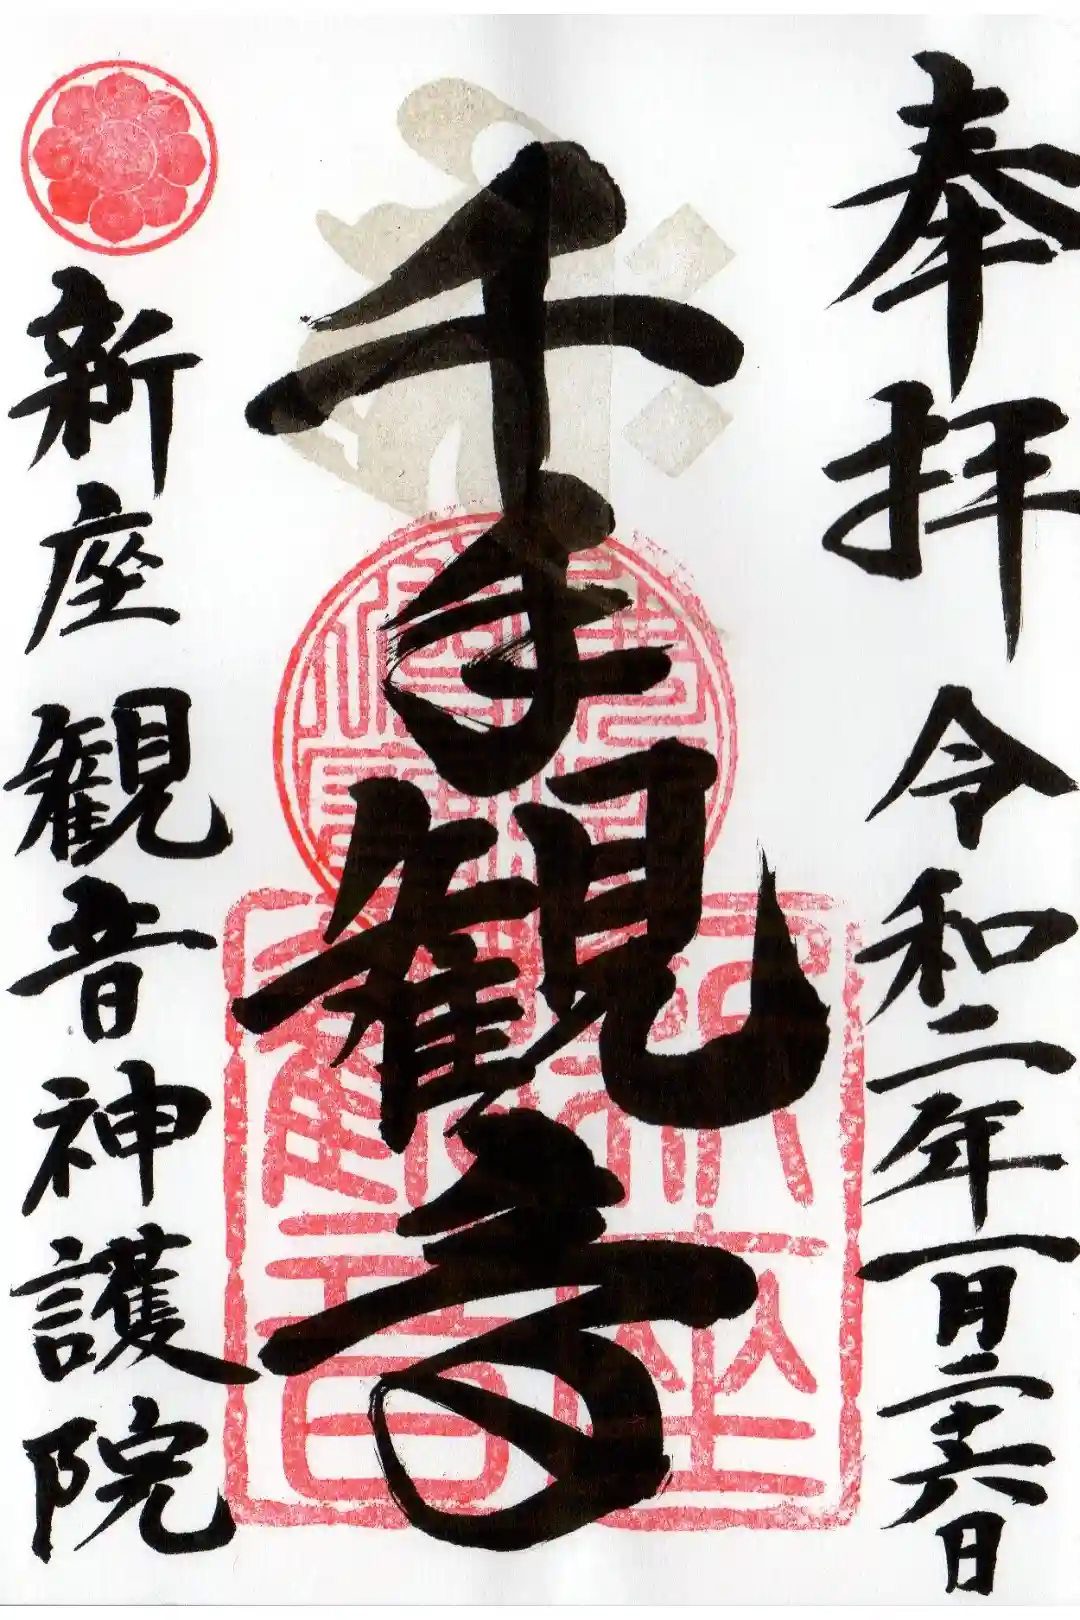 奉拝 令和二年一月二十六日
千手観音
新座観音神護院
新座
観音